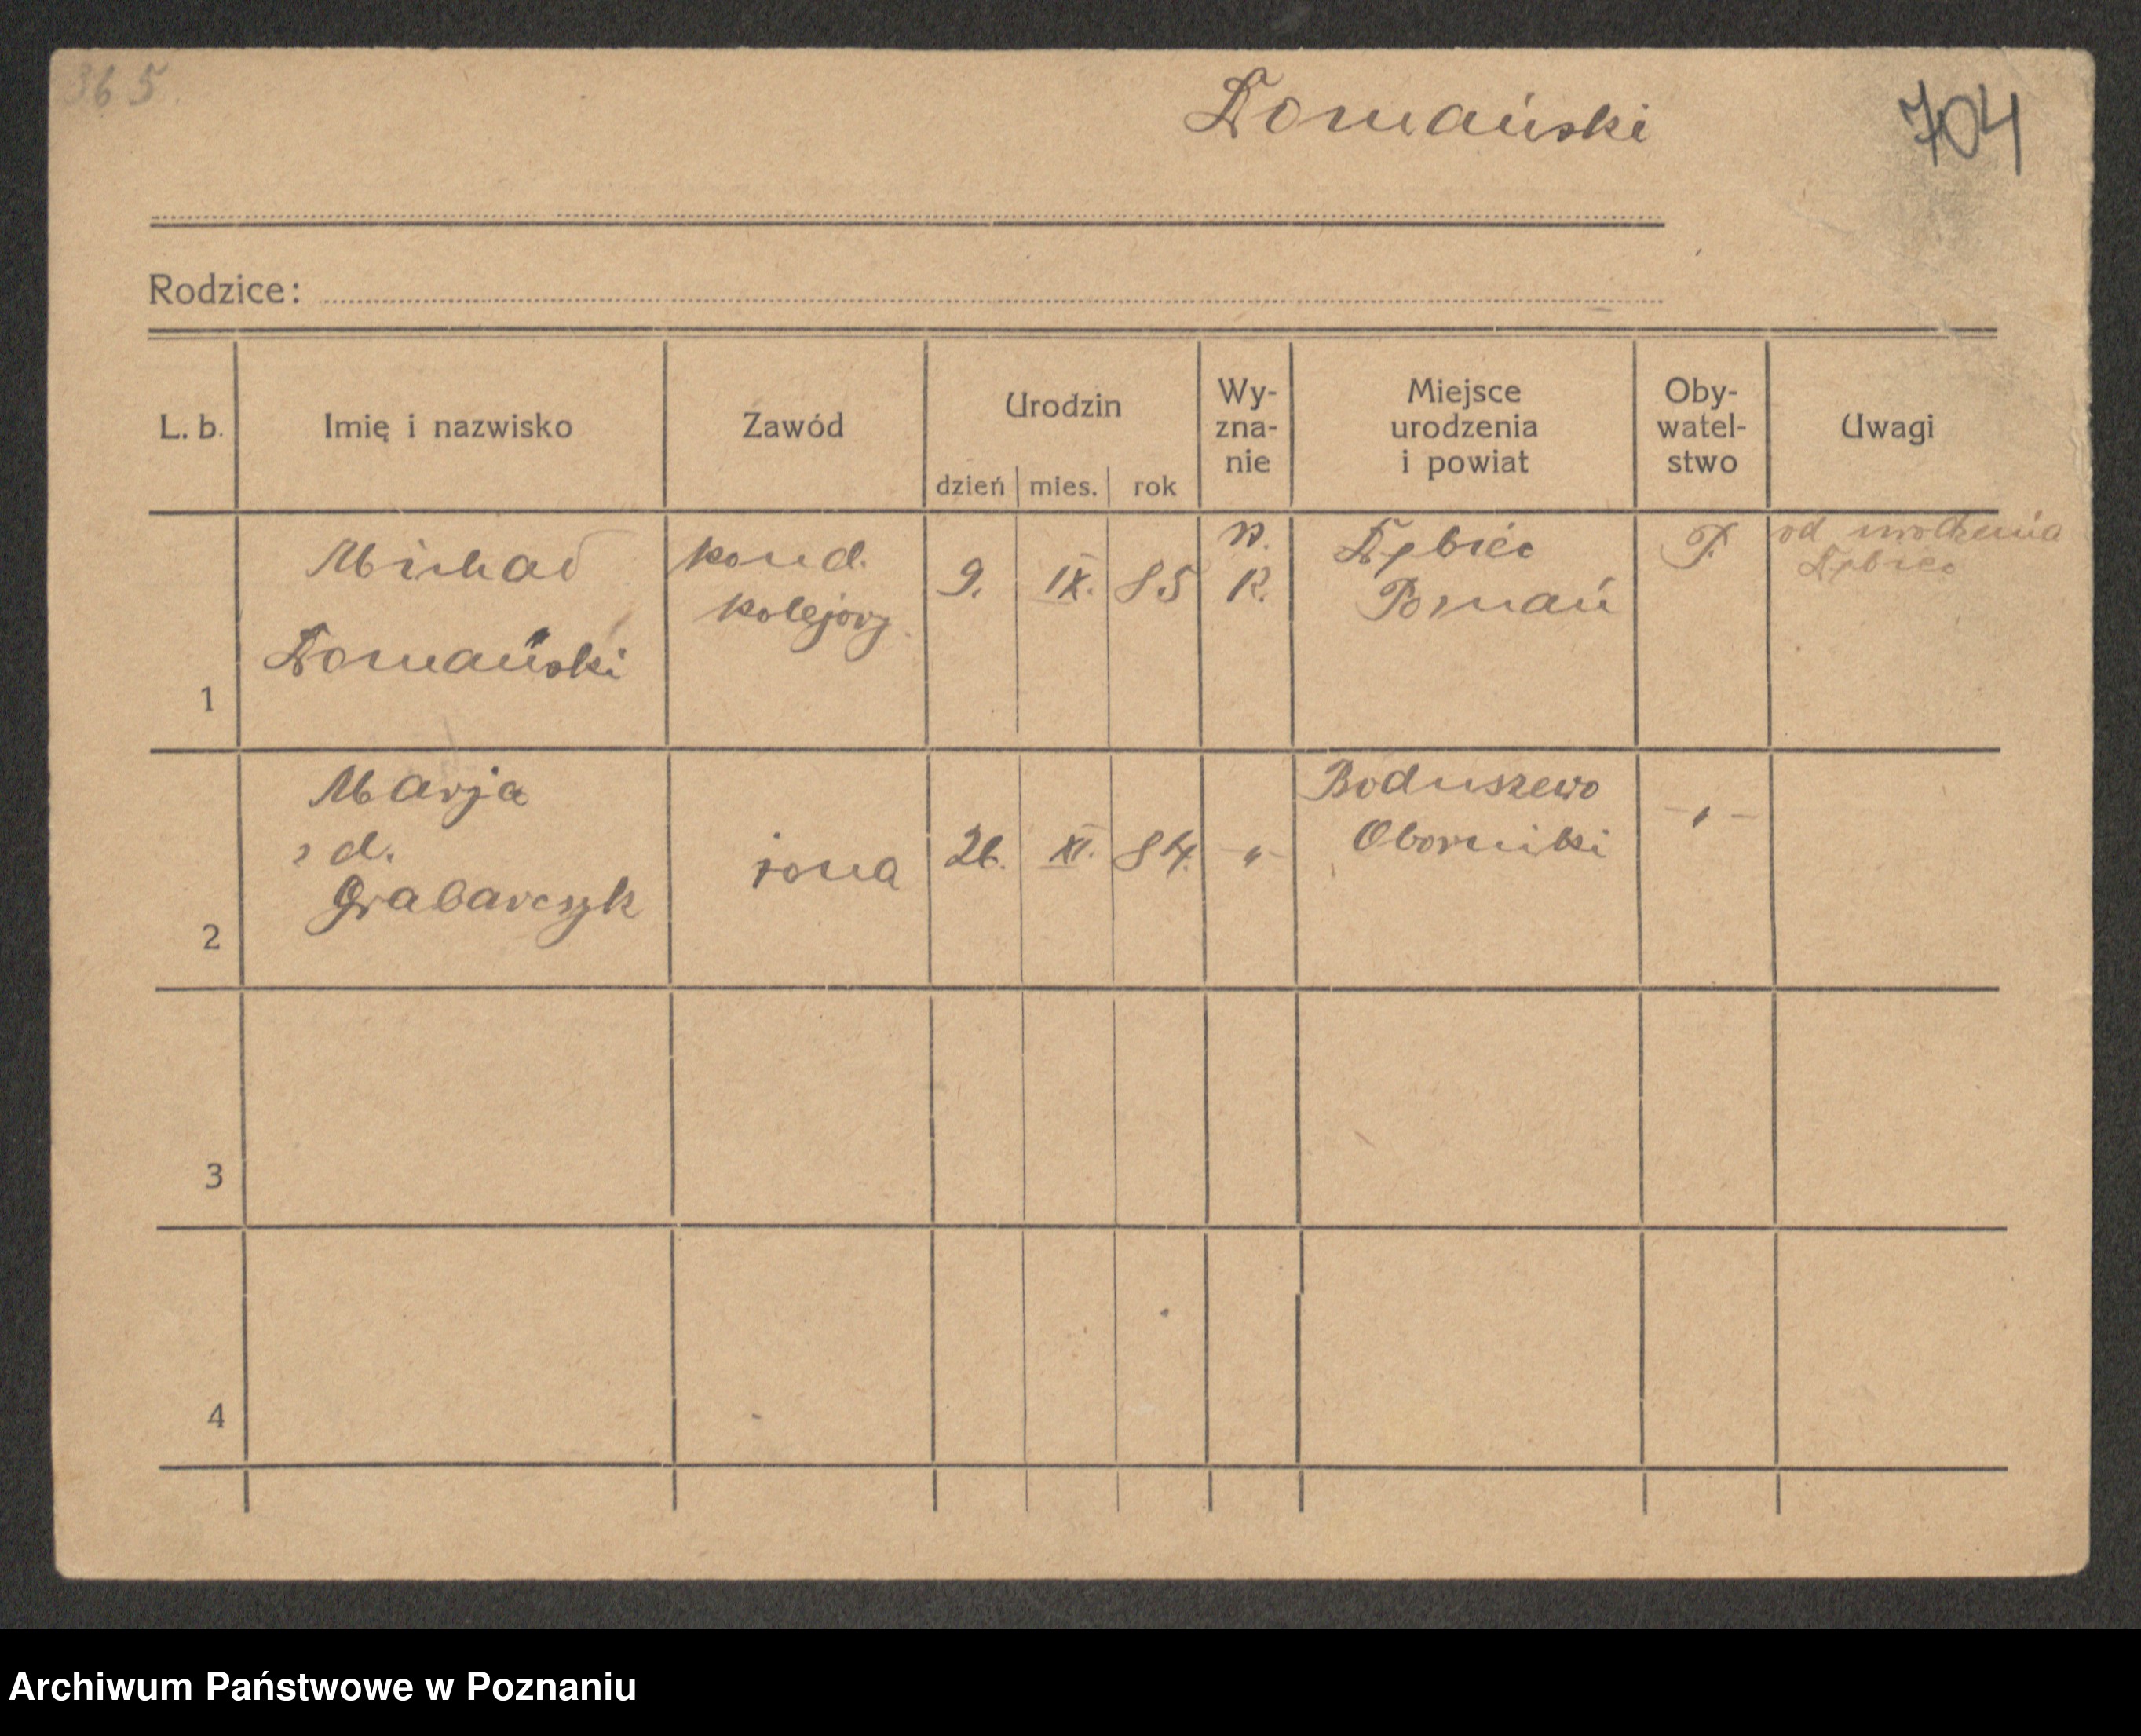 365.
Domański
704
Rodzice:
L. b.
Imię i nazwisko
Zawód
Urodzin
dzień
mies.
rok
Wy-
zna-
nie
Miejsce
urodzenia
i powiat
Oby-
watel-
stwo
Uwagi
1
Michał
Domański
kond.
kolejowy
9.
IX.
85
R.
K.
Dębiec
Poznań
P.
od urodzenia
Dębiec
2
Marja
z d.
Grabarczyk
żona
26.
XI.
84.
-"-
Boduszewo
Oborniki
-"-
3
4
Archiwum Państwowe w Poznaniu